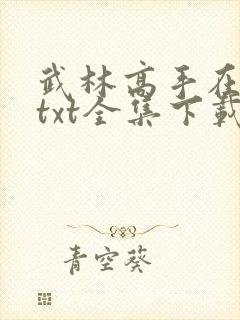 武林高手在
txt全集下载
青空葵